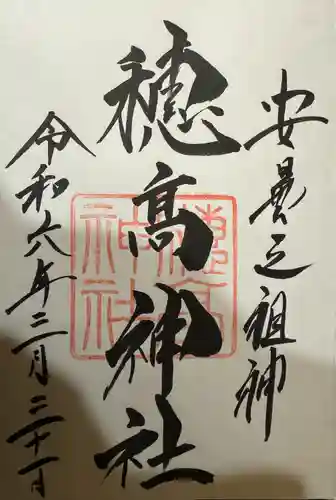 安曇之祖神
穂髙神社
令和六年三月二十一日
穂高神社